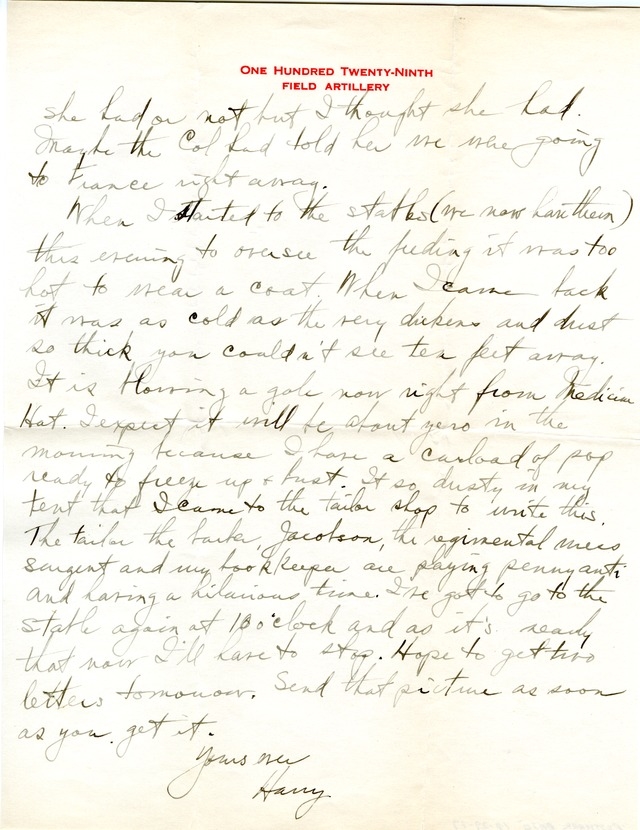 ONE HUNDRED TWENTY-NINTH
FIELD ARTILLERY
she had or not but I thought she had.
Maybe the Col had told her we were going
to France right away.
When I started to the stables (we now have them)
this evening to oversee the feeding it was too
hot to wear a coat. When I came back
it was as cold as the very dickens and dust
so thick you couldn't see ten feet away.
It is blowing a gale now right from Medicine
Hat. I expect it will be about zero in the
morning because I have a carload of pop
ready to freeze up + bust. It so dusty in my
tent that I came to the tailor shop to write this.
The tailor the barber, Jacobson, the regimental mess
sargent and my bookkeeper are playing penny anti
and having a hilarious time. I've got to go to the
stable again at 10 o'clock and as it's nearly
that now I'll have to stop. Hope to get two
letters tomorrow. Send that picture as soon
as you get it.
Yours ever
Harry